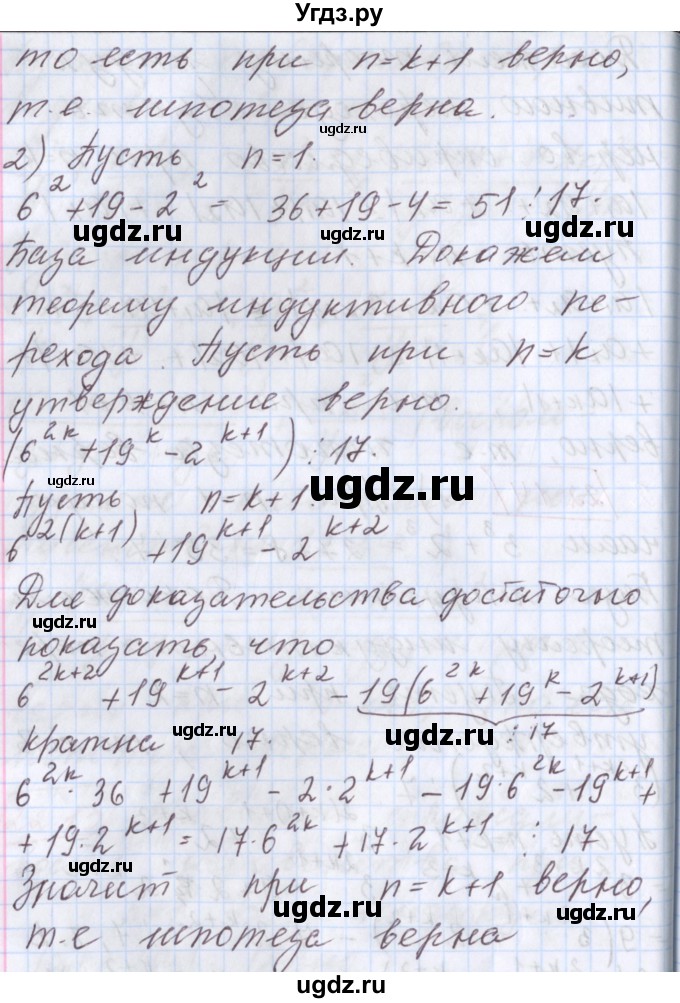 Угдз.ру
то есть при n=k+1 верно,
т.е. гипотеза верна.
2) Пусть n=1.
6² + 19 - 2² = 36 + 19 - 4 = 51 ⋮ 17.
База индукции. Докажем
теорему индуктивного пе-
рехода. Пусть при n=k
утверждение верно.
(6^{2k} + 19^k - 2^{k+1}) ⋮ 17.
Пусть n=k+1.
6^{2(k+1)} + 19^{k+1} - 2^{k+2}
Для доказательства достаточно
показать, что
6^{2k+2} + 19^{k+1} - 2^{k+2} - 19(6^{2k} + 19^k - 2^{k+1})
кратна 17. ⋮ 17
6^{2k} · 36 + 19^{k+1} - 2 · 2^{k+1} - 19 · 6^{2k} - 19^{k+1} +
+ 19 · 2^{k+1} = 17 · 6^{2k} + 17 · 2^{k+1} ⋮ 17
Значит при n=k+1 верно,
т.е гипотеза верна
ugdz.ru
ugdz.ru
ugdz.ru
ugdz.ru
ugdz.ru
ugdz.ru
ugdz.ru
ugdz.ru
ugdz.ru
ugdz.ru
ugdz.ru
ugdz.ru
ugdz.ru
ugdz.ru